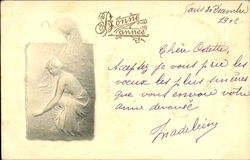 Paris 30 Décembre
1902
Bonne
année
Chère Odette,
Acceptez je vous prie les
vœux les plus sincères
que vous envoie votre
amie dévouée
Madeleine